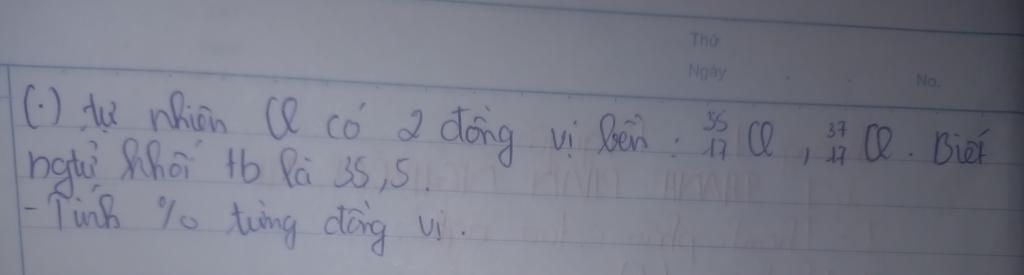 Thứ
Ngày
No.
(.) tự nhiên Cl có 2 đồng vị bền : ³⁵₁₇ Cl , ³⁷₁₇ Cl . Biết
ngtử khối tb là 35,5.
- Tính % từng đồng vị.